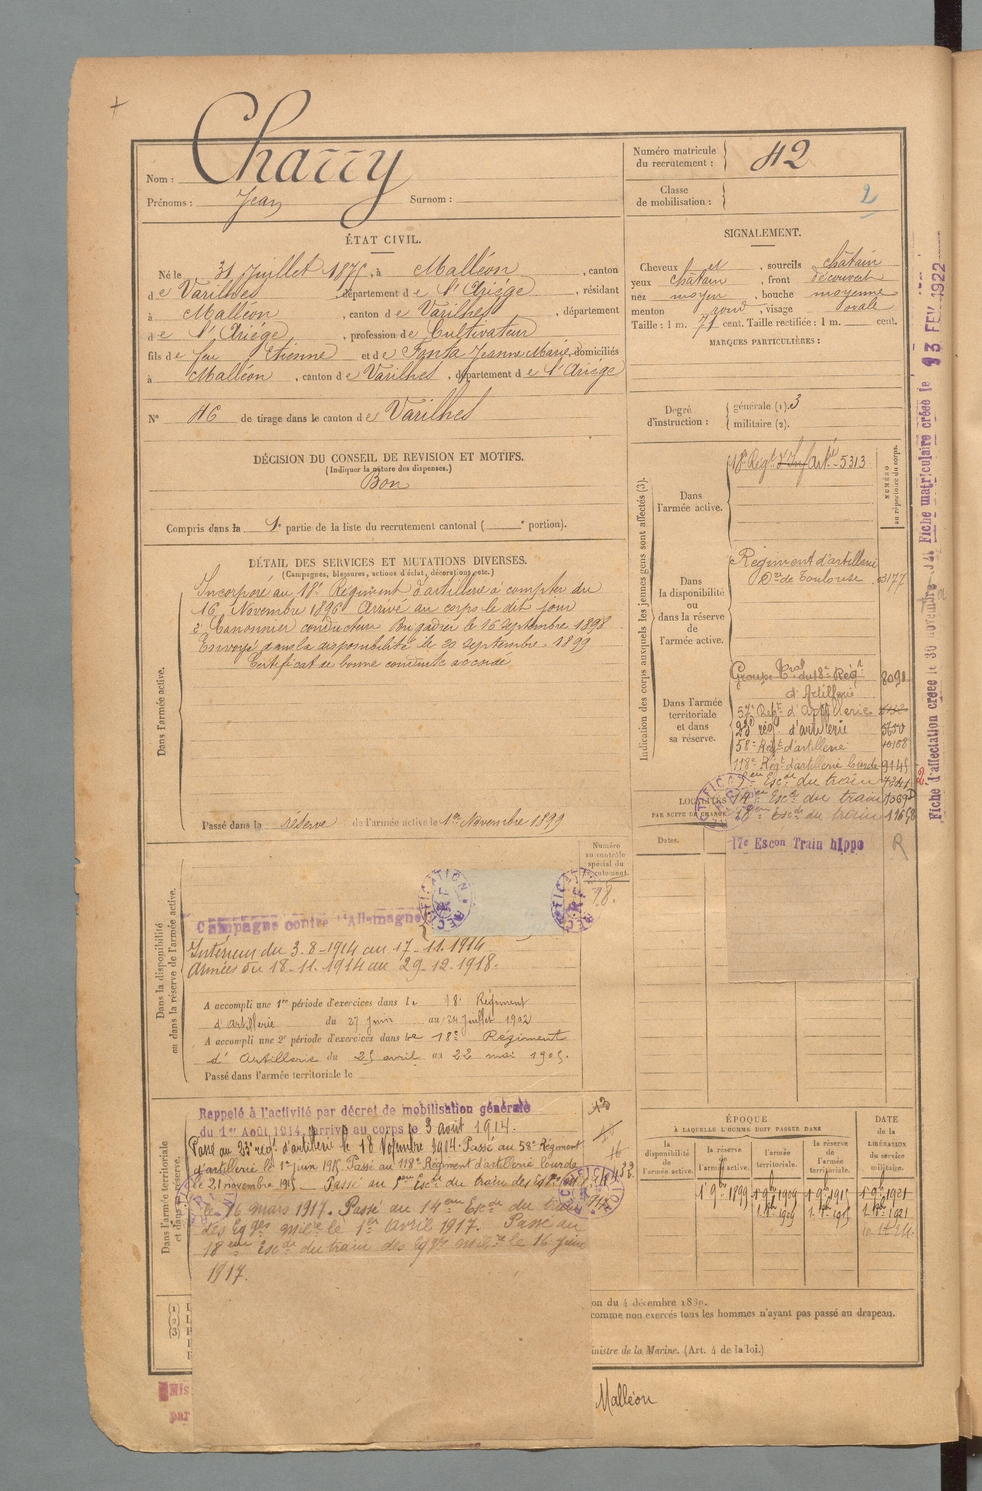 Nom : Charry
Prénoms : Jean Surnom :
Numéro matricule du recrutement : 42
Classe de mobilisation : 2
ÉTAT CIVIL.
Né le 31 Juillet 1875, à Malléon, canton
de Varilhes, département de l'Ariége, résidant
à Malléon, canton de Varilhes, département
de l'Ariége, profession de Cultivateur
fils de feu Etienne et de Fonta Jeanne Marie, domiciliés
à Malléon, canton de Varilhes, département de l'Ariége
N° 46 de tirage dans le canton de Varilhes
SIGNALEMENT.
Cheveux et, sourcils châtain
yeux châtain, front découvert
nez moyen, bouche moyenne
menton rond, visage ovale
Taille : 1 m. 71 cent. Taille rectifiée : 1 m. cent.
MARQUES PARTICULIÈRES :
Degré d'instruction : générale (1). 3
militaire (2).
DÉCISION DU CONSEIL DE REVISION ET MOTIFS.
(Indiquer la nature des dispenses.)
Bon
Compris dans la 1e partie de la liste du recrutement cantonal ( e portion).
DÉTAIL DES SERVICES ET MUTATIONS DIVERSES.
(Campagnes, blessures, actions d'éclat, décorations, etc.)
Dans l'armée active.
Incorporé au 18e Régiment d'artillerie à compter du
16 Novembre 1896 Arrivé au corps le dit jour
2e Canonnier conducteur Brigadier le 16 Septembre 1898
Envoyé dans la disponibilité le 20 Septembre 1899
Certificat de bonne conduite accordé
Passé dans la réserve de l'armée active le 1er Novembre 1899
Indication des corps auxquels les jeunes gens sont affectés (3).
NUMÉRO au répertoire du corps.
Dans l'armée active.
18e Régt d'Inf Artie 5313
Dans la disponibilité ou dans la réserve de l'armée active.
Régiment d'artillerie
de Toulouse 3177
Dans l'armée territoriale et dans sa réserve.
Groupe Tal du 18e Régt 8090
d'Artillerie
57e Régt d'Artillerie
23e rég. d'artillerie
58e Régt d'artillerie
118e Régt d'artillerie lourde 9145
Escon du train
14eme Escon du train
18eme Escon du train
17e Escon Train hippo
R
LOCALITÉS
PAR SUITE DE CHANGE
Dates.
Numéro au contrôle spécial du recrutement.
78.
Dans la disponibilité ou dans la réserve de l'armée active.
Campagne contre l'Allemagne
Intérieur du 3-8-1914 au 17-11-1914
Armées du 18-11-1914 au 29-12-1918.
A accompli une 1re période d'exercices dans le 18e Régiment
d'Artillerie du 27 juin au 24 juillet 1902
A accompli une 2e période d'exercices dans le 18e Régiment
d'Artillerie du 25 avril au 22 mai 1905.
Passé dans l'armée territoriale le
Dans l'armée territoriale et dans sa réserve.
Rappelé à l'activité par décret de mobilisation générale
du 1er Août 1914, arrivé au corps le 3 août 1914.
Passé au 23e régt d'artillerie le 18 Novembre 1914. Passé au 58e Régiment
d'artillerie le 1er juin 1915 Passé au 118e Régiment d'artillerie lourde
le 21 novembre 1915 Passé au Escon du train des
le 16 mars 1917. Passé au 14eme Escon du train
des Eqges milre le 1er avril 1917. Passé au
18eme Escon du train des Eqges milre le 16 juin
1917.
ÉPOQUE
À LAQUELLE L'HOMME DOIT PASSER DANS
la disponibilité de l'armée active.
la réserve de l'armée active.
l'armée territoriale.
la réserve de l'armée territoriale.
DATE de la LIBÉRATION du service militaire.
1 9bre 1899 1 9bre 1909 1 9bre 1915 1 9bre 1921
on du 4 décembre 1889.
comme non exercés tous les hommes n'ayant pas passé au drapeau.
inistre de la Marine. (Art. 4 de la loi.)
(1)
(2)
(3)
Mis
par
Malléon
Fiche d'affectation créée le 30 novembre
Fiche matriculaire créée le 13 FEV. 1922